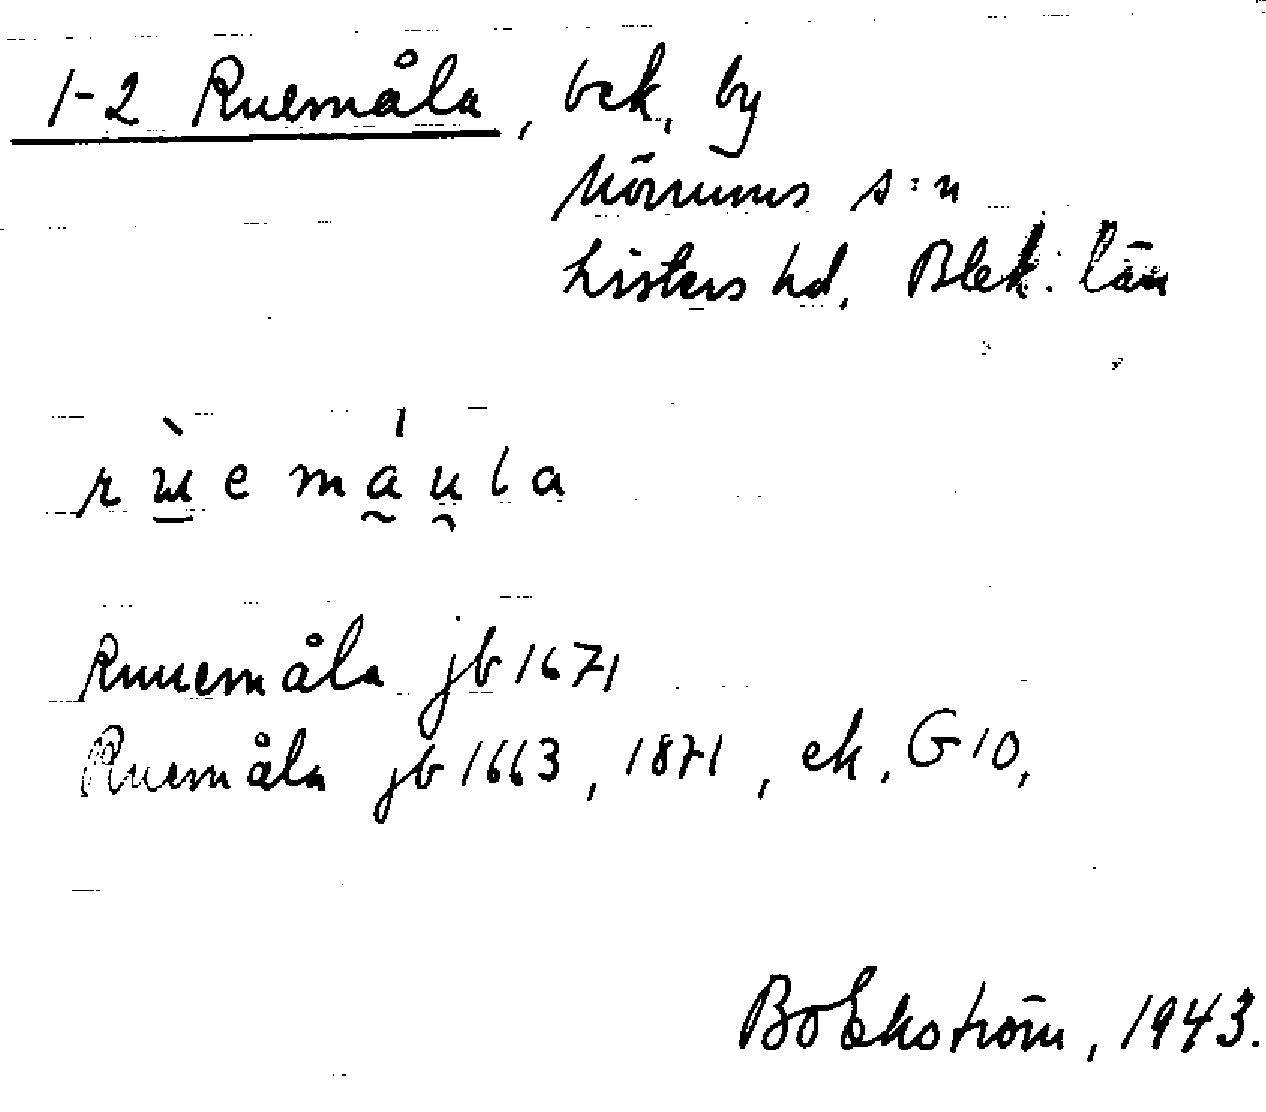 1-2 Ruemåla, bek. by
Mörrums s:n
Listers hd. Blek. län
rɯ̀emáu̯la
Ruuemåla jb 1671
Ruemåla jb 1663, 1871, ek. G10,
Bo Ekström, 1943.